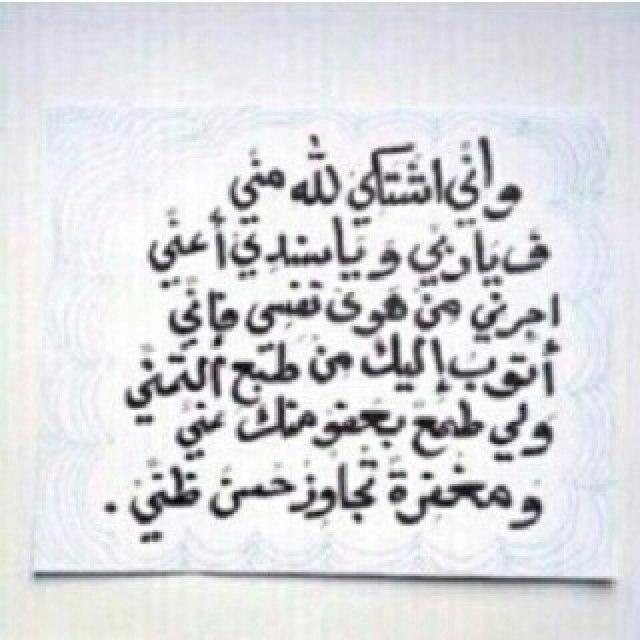 وأنّي اشتكي لله منّي
ف ياربّي و ياسندي أعنّي
اجرني من هوى نفسي فإنّي
أتوب إليك من طبع التمنّي
ولي طمع بعفو منك عنّي
ومغفرة تجاوز حسن ظنّي .